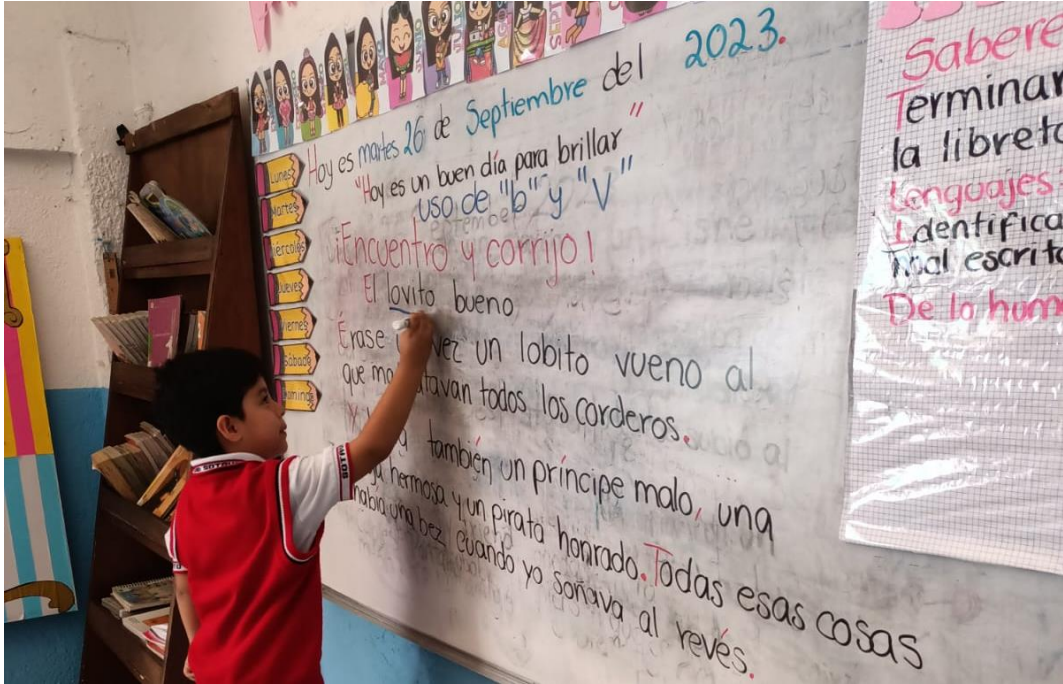 Hoy es martes 26 de Septiembre del 2023.
"Hoy es un buen día para brillar"
uso de "b" y "V"
¡Encuentro y corrijo!
El lovito bueno
Érase vez un lobito vueno al
que ma tavan todos los corderos.
Y también un príncipe malo, una
hermosa y un pirata honrado. Todas esas cosas
había una bez cuando yo soñava al revés.
Lunes
Martes
iércoles
Jueves
Viernes
Sábado
omingo
Sabere
Terminar
la libreta
Lenguajes
Identifica
mal escrito
De lo hum